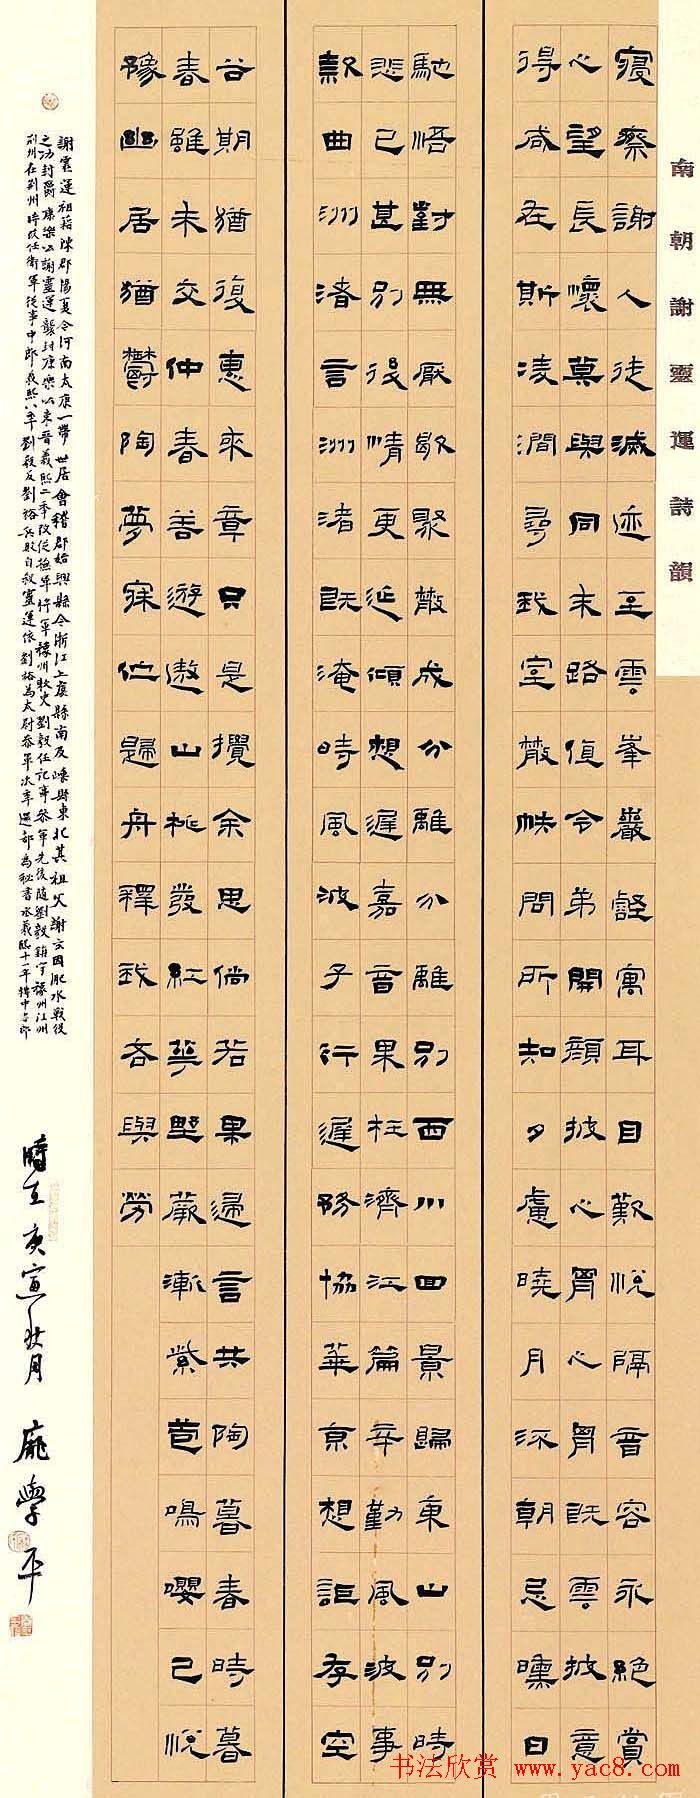 南朝謝靈運詩韻
寢瘵謝人徒滅迹至雲峯巖壑寓耳目歡悅隔音容永絕賞
心望長懷莫與同末路值令弟開顏披心胷心胷既雲披意
得咸在斯凌澗尋我室散帙問所知夕慮曉月流朝忌曛日
馳悟對無厭歇聚散成分離分離別西川回景歸東山別時
悲已甚別後情更延傾想遲嘉音果枉濟江篇辛勤風波事
款曲洲渚言洲渚既淹時風波子行遲務協華京想詎存空
谷期猶復惠來章只是攪余思倘若果歸言共陶暮春時暮
春雖未交仲春善遊遨山桃發紅萼野蕨漸紫苞鳴嚶已悅
豫幽居猶鬱陶夢寐佇歸舟釋我吝與勞
謝靈運祖籍陳郡陽夏今河南太康一帶世居會稽郡始興縣今浙江上虞縣南及嵊縣東北其祖父謝玄因淝水戰役
之功封爵康樂公謝靈運襲封康樂公東晉義熙二年改從撫軍將軍豫州刺史劉毅任記室參軍先後隨劉毅鎮守豫州江州
荊州在荊州時改任衛軍從事中郎義熙八年劉毅反劉裕兵敗自殺靈運依劉裕為太尉參軍次年還都為秘書丞義熙十一年轉中書郎
時在庚寅壯月 龐學平
书法欣赏 www.yac8.com